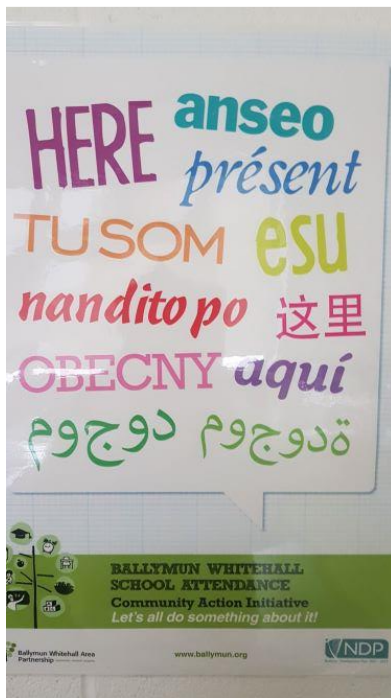 HERE anseo
présent
TU SOM esu
nandito po 这里
OBECNY aquí
ةدوجوم دوجوم
BALLYMUN WHITEHALL
SCHOOL ATTENDANCE
Community Action Initiative
Let's all do something about it!
Ballymun Whitehall Area
Partnership
www.ballymun.org
NDP